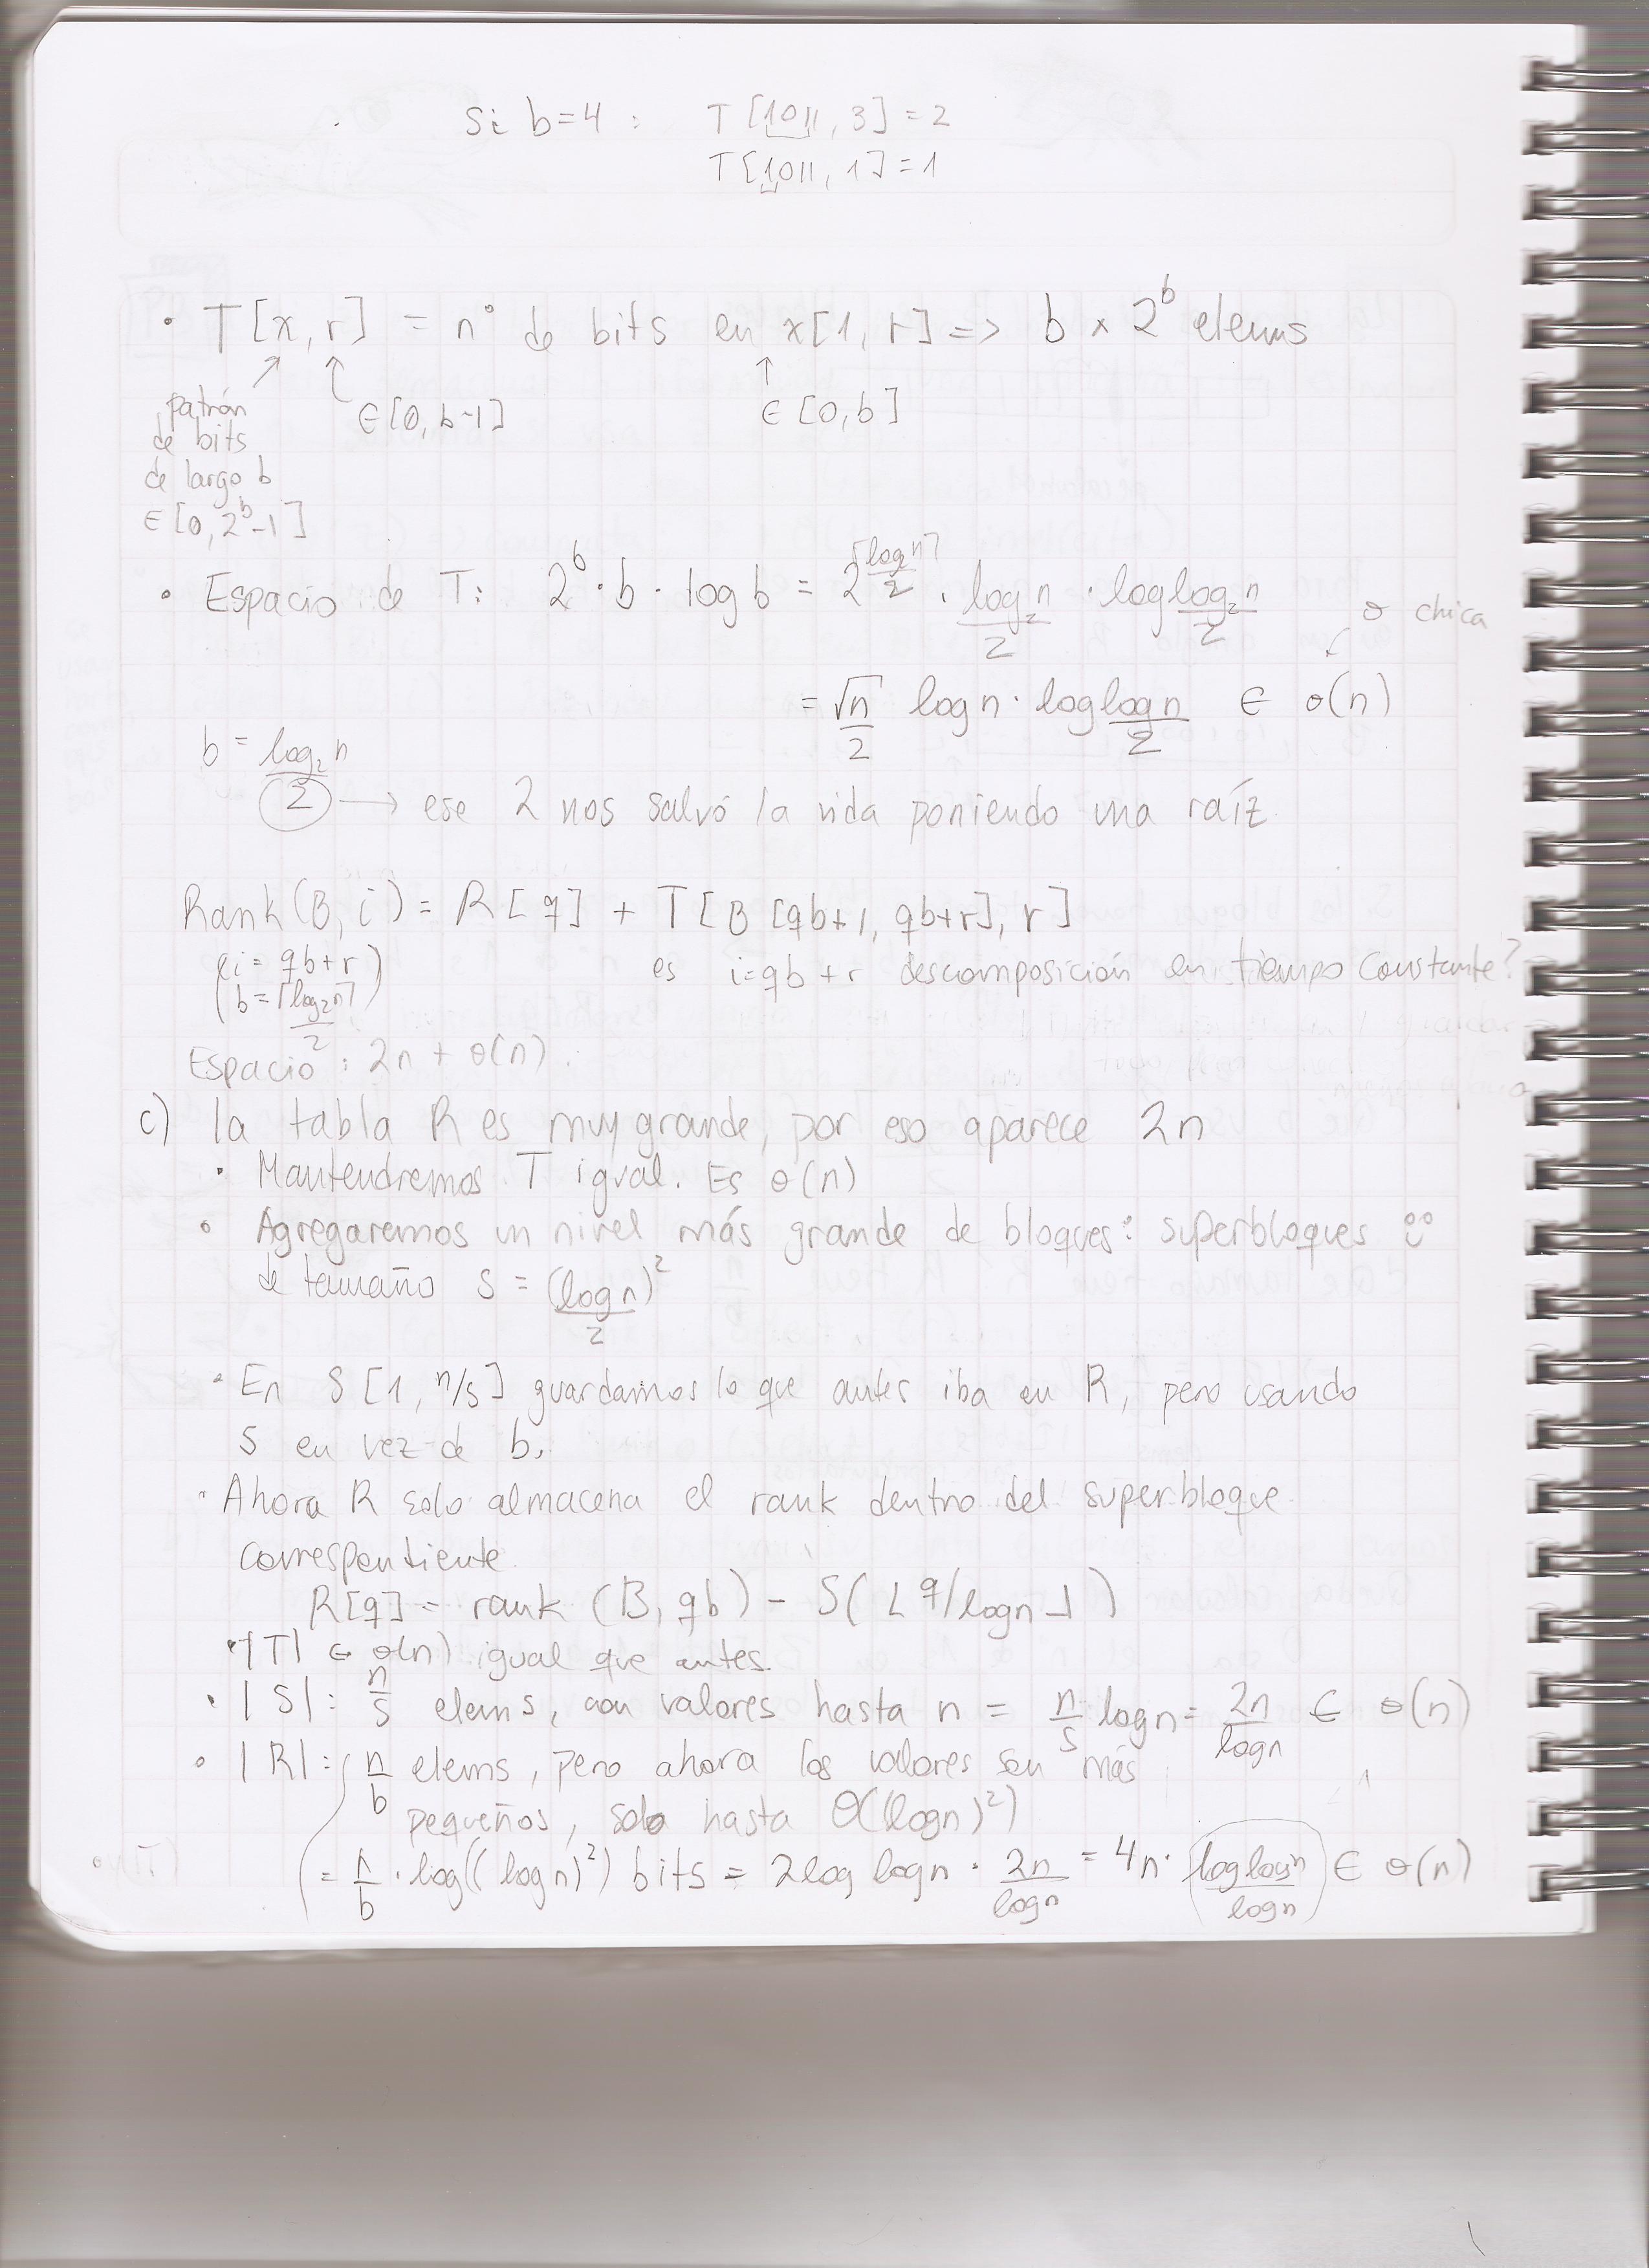 Si b=4 : T[1011, 3] = 2
T[1011, 1] = 1
• T[x, r] = n° de bits en x[1, r] => b × 2^b elems
patrón de bits de largo b ∈ [0, 2^b-1]
∈ [0, b-1]
∈ [0, b]
• Espacio de T: 2^b · b · log b = 2^(⌈log₂n⌉/2) · log₂n/2 · log log₂n/2
o chica
= √n/2 log n · log log n/2 ∈ o(n)
b = log₂n/2 → ese 2 nos salvó la vida poniendo una raíz.
Rank(B, i) = R[q] + T[B[qb+1, qb+r], r]
(i = qb+r)
(b = ⌈log₂n⌉/2)
es i=qb+r descomposición en tiempo constante?
Espacio: 2n + o(n).
c) la tabla R es muy grande, por eso aparece 2n
• Mantendremos T igual. Es o(n)
• Agregaremos un nivel más grande de bloques: superbloques
de tamaño s = (log n)²/2
• En S[1, n/s] guardamos lo que antes iba en R, pero usando
s en vez de b.
• Ahora R solo almacena el rank dentro del superbloque
correspontiente.
R[q] = rank (B, qb) - S(⌊q/log n⌋)
• |T| ∈ o(n) igual que antes.
• |S|: n/s elems, con valores hasta n = n/s log n = 2n/log n ∈ o(n)
• |R|: n/b elems, pero ahora los valores son más
pequeños, solo hasta O((log n)²)
= n/b · log((log n)²) bits = 2 log log n · 2n/log n = 4n · log log n/log n ∈ o(n)